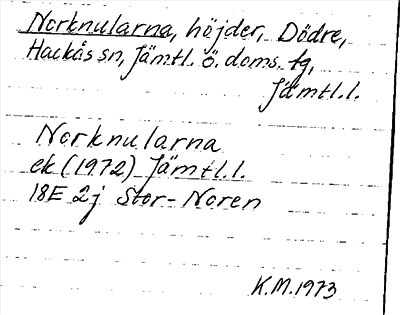 Norknularna, höjder, Dödre,
Hackås sn, Jämtl. ö. doms. tg,
Jämtl.l.
Norknularna
ek (1972) Jämtl.l.
18E 2j Stor-Noren
K.M.1973